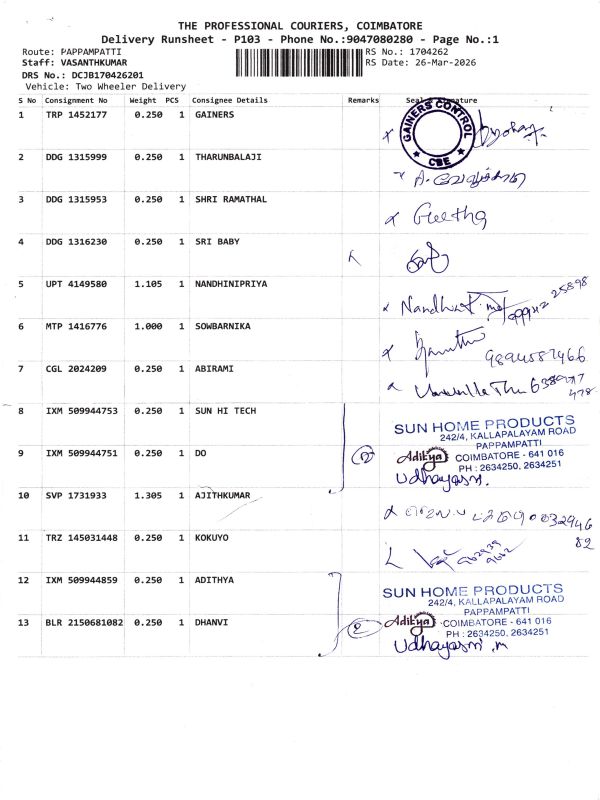 THE PROFESSIONAL COURIERS, COIMBATORE
Delivery Runsheet - P103 - Phone No.:9047080280 - Page No.:1
Route: PAPPAMPATTI RS No.: 1704262
Staff: VASANTHKUMAR RS Date: 26-Mar-2026
DRS No.: DCJB170426201
Vehicle: Two Wheeler Delivery
S No Consignment No Weight PCS Consignee Details Remarks
1 TRP 1452177 0.250 1 GAINERS
GAINERS CONTROL CBE
2 DDG 1315999 0.250 1 THARUNBALAJI
3 DDG 1315953 0.250 1 SHRI RAMATHAL
Geetha
4 DDG 1316230 0.250 1 SRI BABY
5 UPT 4149580 1.105 1 NANDHINIPRIYA
6 MTP 1416776 1.000 1 SOWBARNIKA
7 CGL 2024209 0.250 1 ABIRAMI
8 IXM 509944753 0.250 1 SUN HI TECH
SUN HOME PRODUCTS
242/4, KALLAPALAYAM ROAD
PAPPAMPATTI
9 IXM 509944751 0.250 1 DO
2
Adikya COIMBATORE - 641 016
PH : 2634250, 2634251
10 SVP 1731933 1.305 1 AJITHKUMAR
11 TRZ 145031448 0.250 1 KOKUYO
12 IXM 509944859 0.250 1 ADITHYA
SUN HOME PRODUCTS
242/4, KALLAPALAYAM ROAD
PAPPAMPATTI
13 BLR 2150681082 0.250 1 DHANVI
2
Adikya COIMBATORE - 641 016
PH : 2634250, 2634251